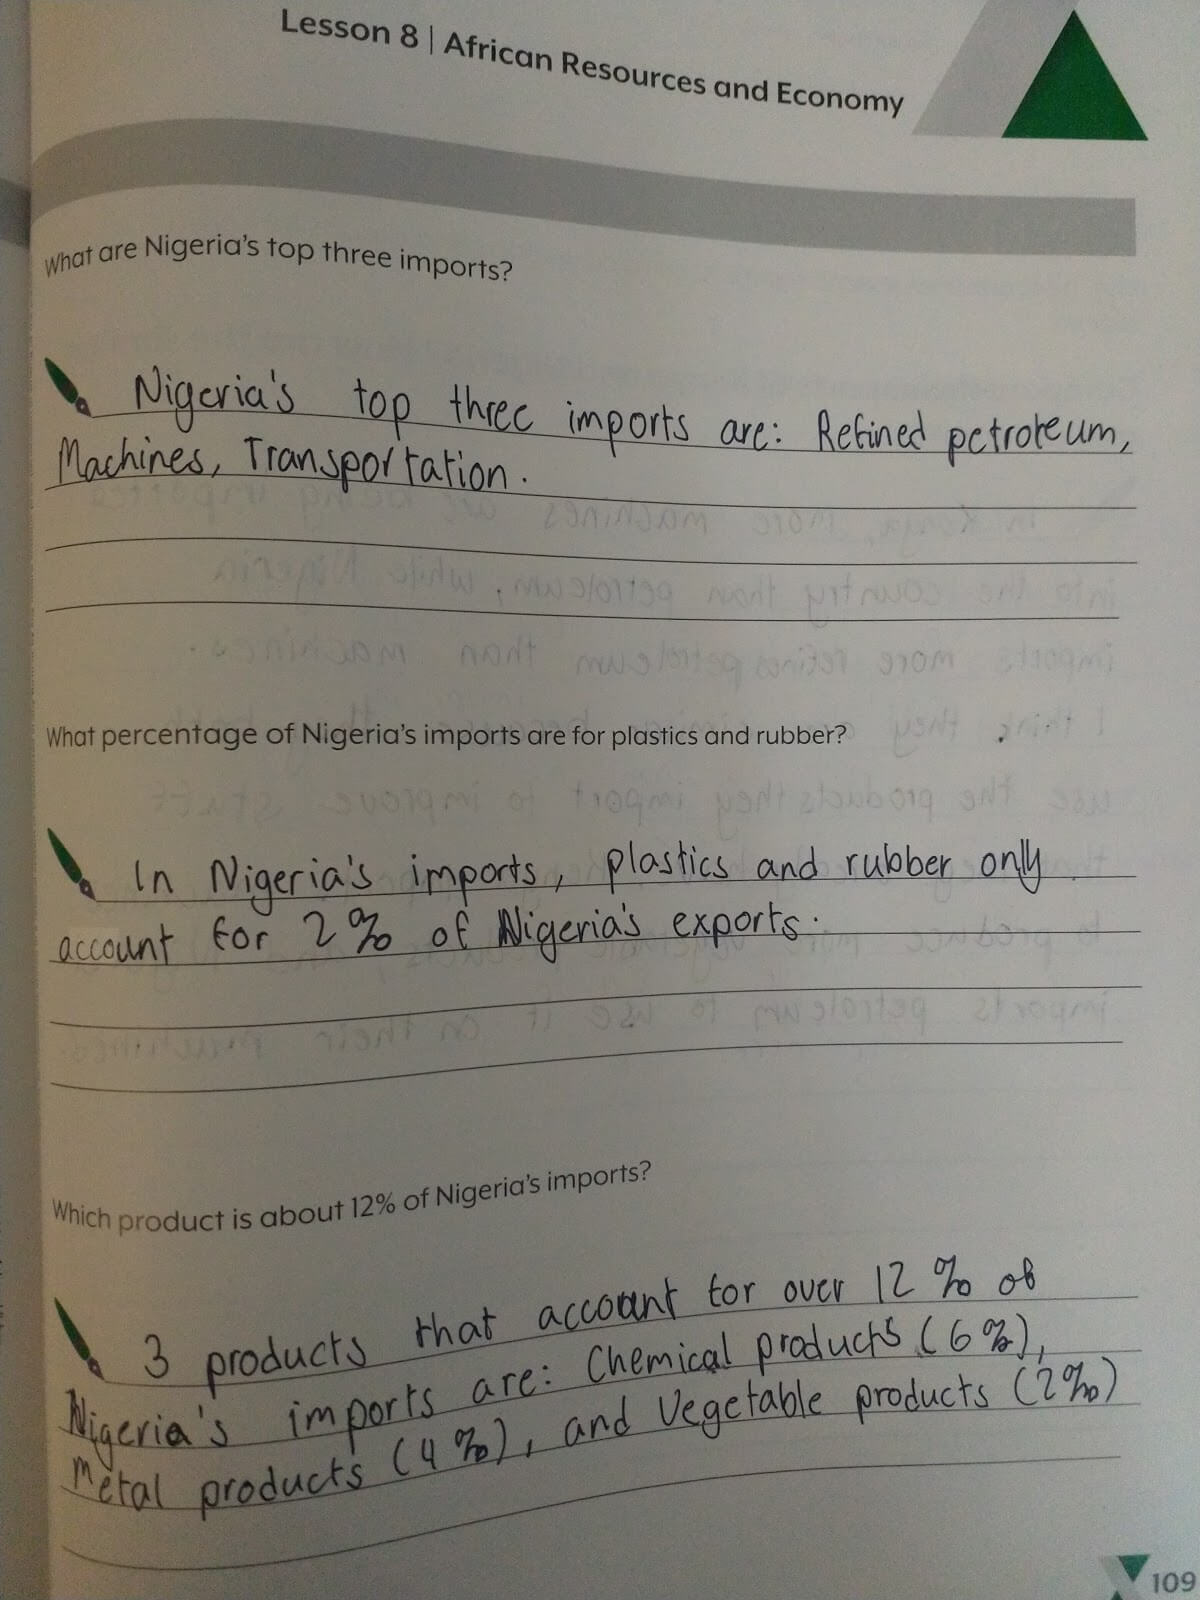 Lesson 8 | African Resources and Economy
What are Nigeria's top three imports?
Nigeria's top three imports are: Refined petroleum,
Machines, Transportation.
What percentage of Nigeria's imports are for plastics and rubber?
In Nigeria's imports, plastics and rubber only
account for 2% of Nigeria's exports.
Which product is about 12% of Nigeria's imports?
3 products that account for over 12% of
Nigeria's imports are: Chemical products (6%),
Metal products (4%), and Vegetable products (2%)
109